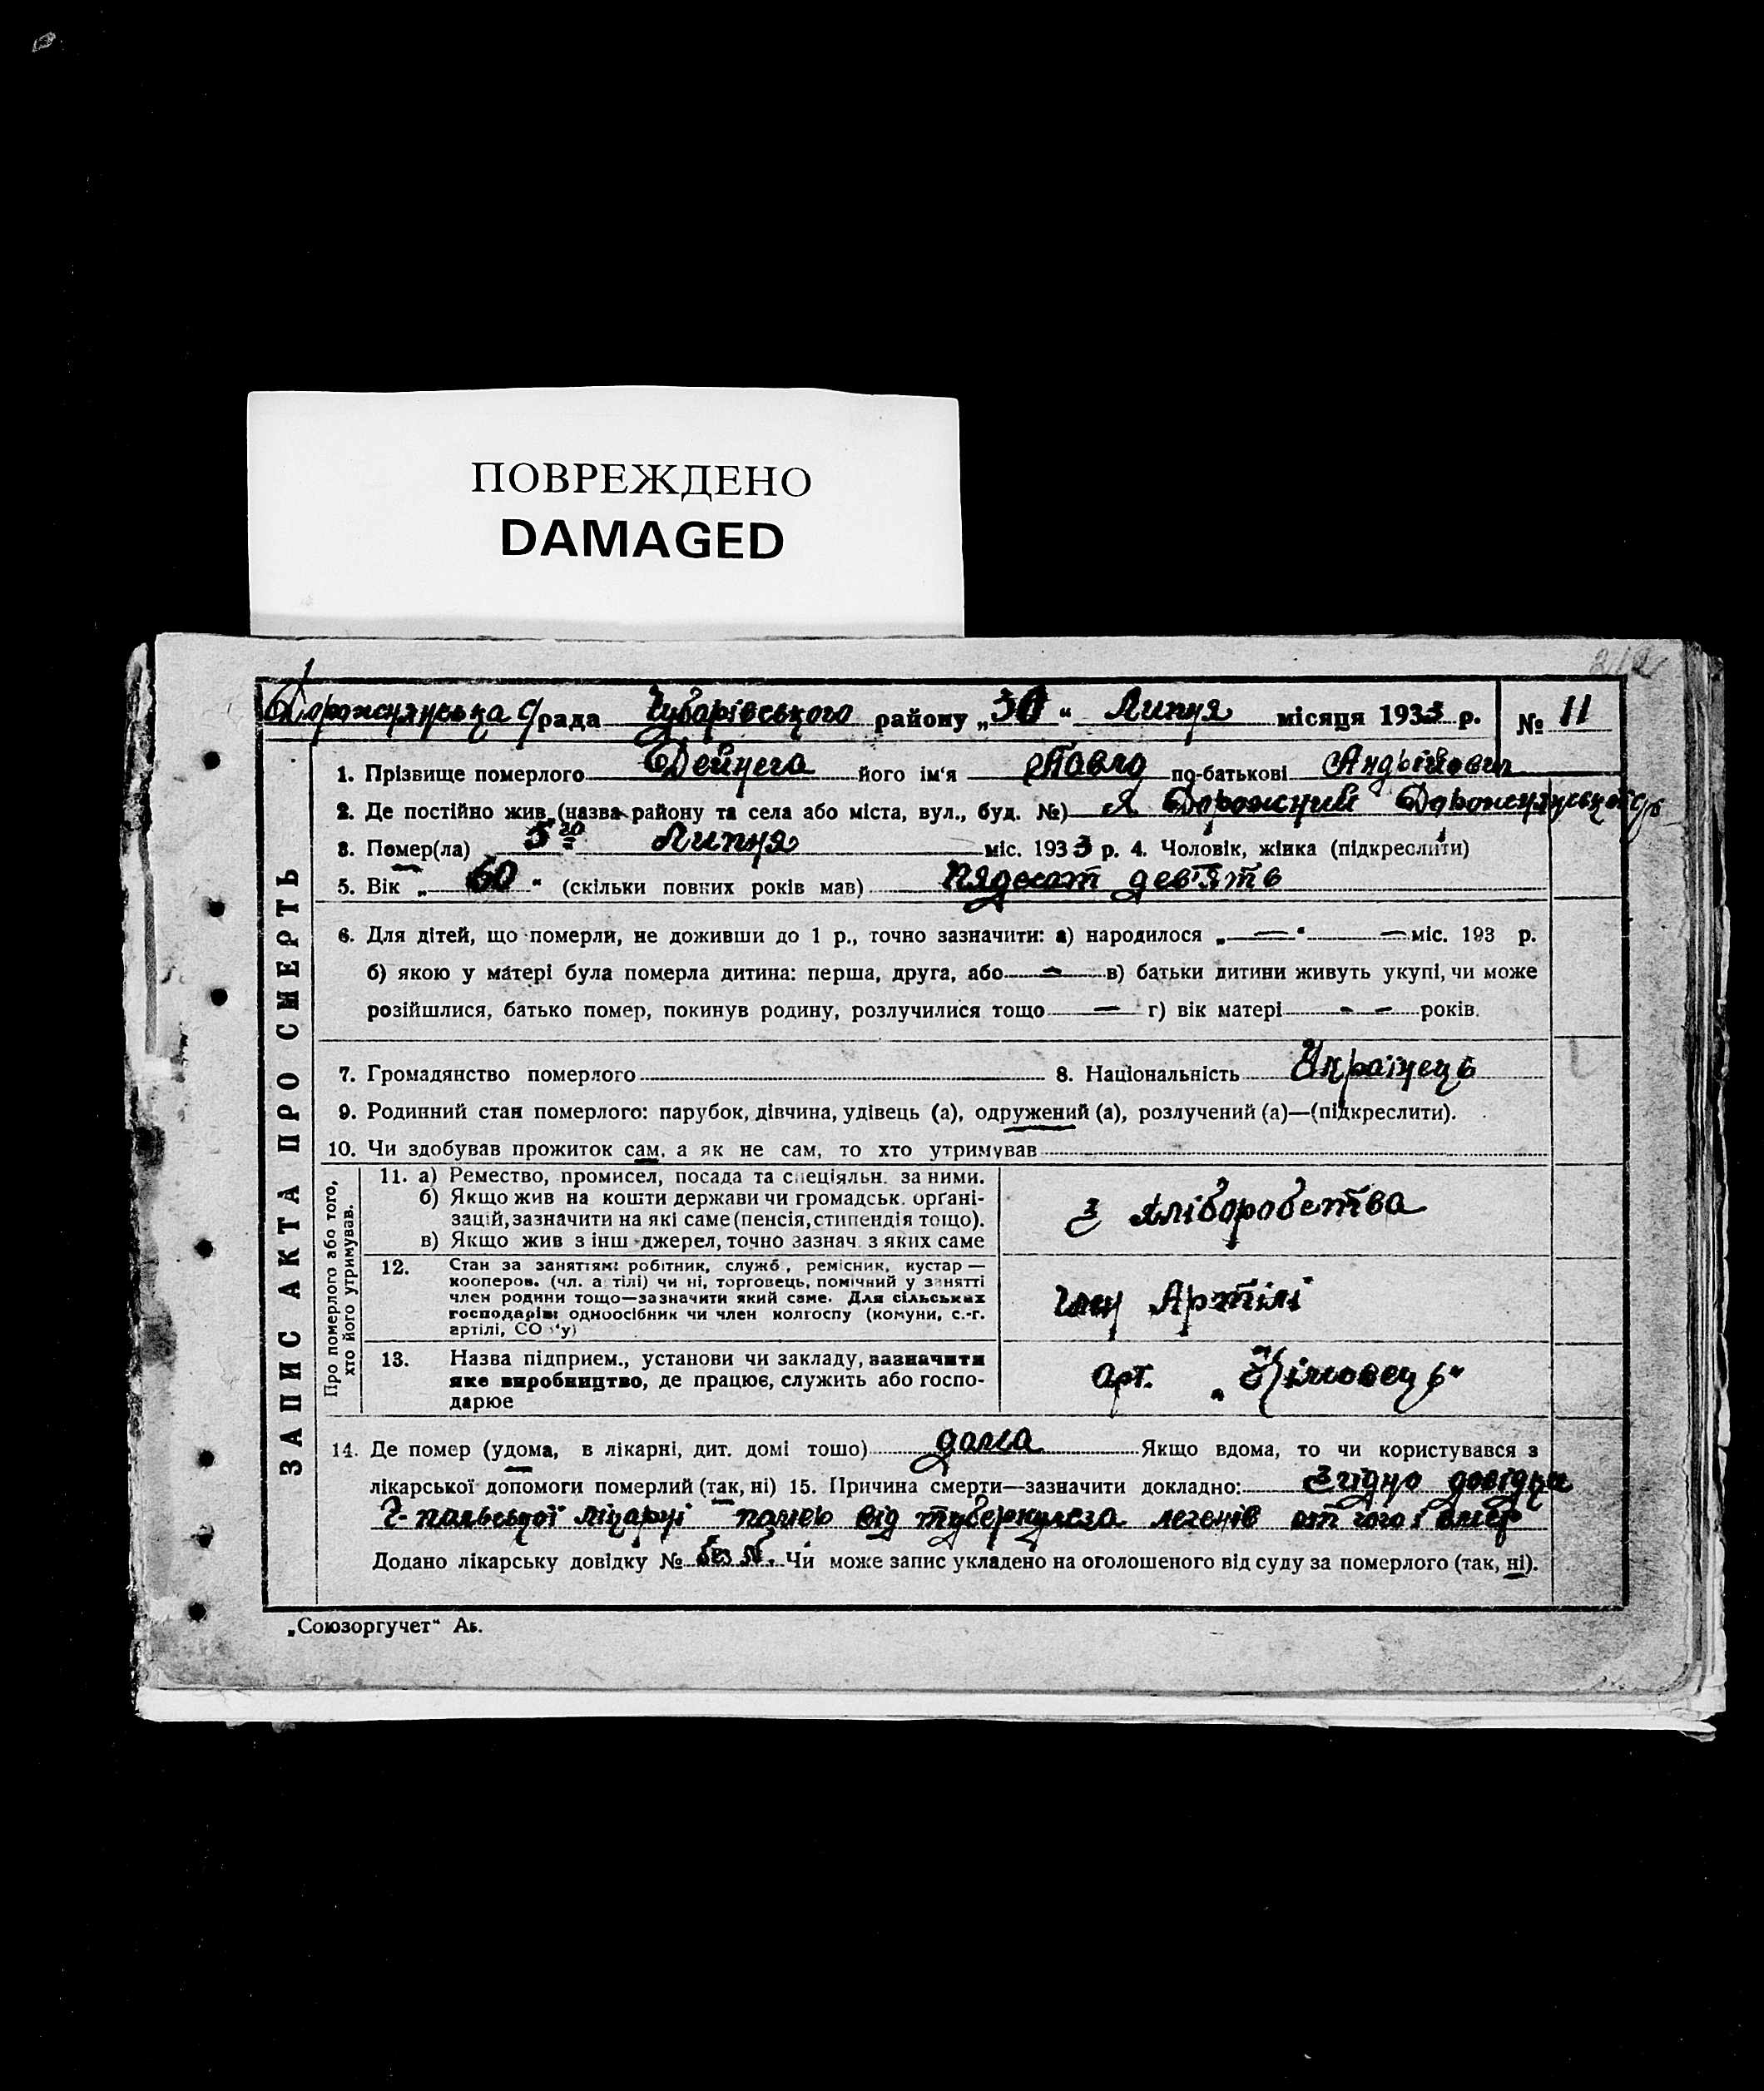 ПОВРЕЖДЕНО
DAMAGED
Дорожнянська с/рада Чубарівського району „30“ Липня місяця 1933 р. № 11
ЗАПИС АКТА ПРО СМЕРТЬ
1. Прізвище померлого Дейнега його ім'я Павло по-батькові Андрійович
2. Де постійно жив (назва району та села або міста, вул., буд. №) Дорожнянської с/р
3. Помер(ла) 5го Липня міс. 1933 р. 4. Чоловік, жінка (підкреслити)
5. Вік „60“ (скільки повних років мав) пядесят дев'ять
6. Для дітей, що померли, не доживши до 1 р., точно зазначити: а) народилося „—“ — міс. 193 р.
б) якою у матері була померла дитина: перша, друга, або — в) батьки дитини живуть укупі, чи може
розійшлися, батько помер, покинув родину, розлучилися тощо — г) вік матері — — років.
7. Громадянство померлого 8. Національність Українець
9. Родинний стан померлого: парубок, дівчина, удівець (а), одружений (а), розлучений (а)—(підкреслити).
10. Чи здобував прожиток сам, а як не сам, то хто утримував
Про померлого або того,
хто його утримував.
11. а) Ремество, промисел, посада та спеціяльн. за ними.
б) Якщо жив на кошти держави чи громадськ. орґані-
зацій, зазначити на які саме (пенсія, стипендія тощо).
в) Якщо жив з інш джерел, точно зазнач. з яких саме
з хліборобства
12. Стан за заняттям: робітник, служб., ремісник, кустар—
кооперов. (чл. артілі) чи ні, торговець, помічний у занятті
член родини тощо—зазначити який саме. Для сільських
господарів: одноосібник чи член колгоспу (комуни, с.-г.
артілі, СО у)
член Артілі
13. Назва підприєм., установи чи закладу, зазначити
яке виробництво, де працює, служить або госпо-
дарює
Арт.
14. Де помер (удома, в лікарні, дит. домі тощо) дома Якщо вдома, то чи користувався з
лікарської допомоги померлий (так, ні) 15. Причина смерти—зазначити докладно: Згідно довідки
Г-пальської лікарні помер від туберкульоза легенів от чого і вмер
Додано лікарську довідку № без №. Чи може запис укладено на оголошеного від суду за померлого (так, ні).
„Союзоргучет“